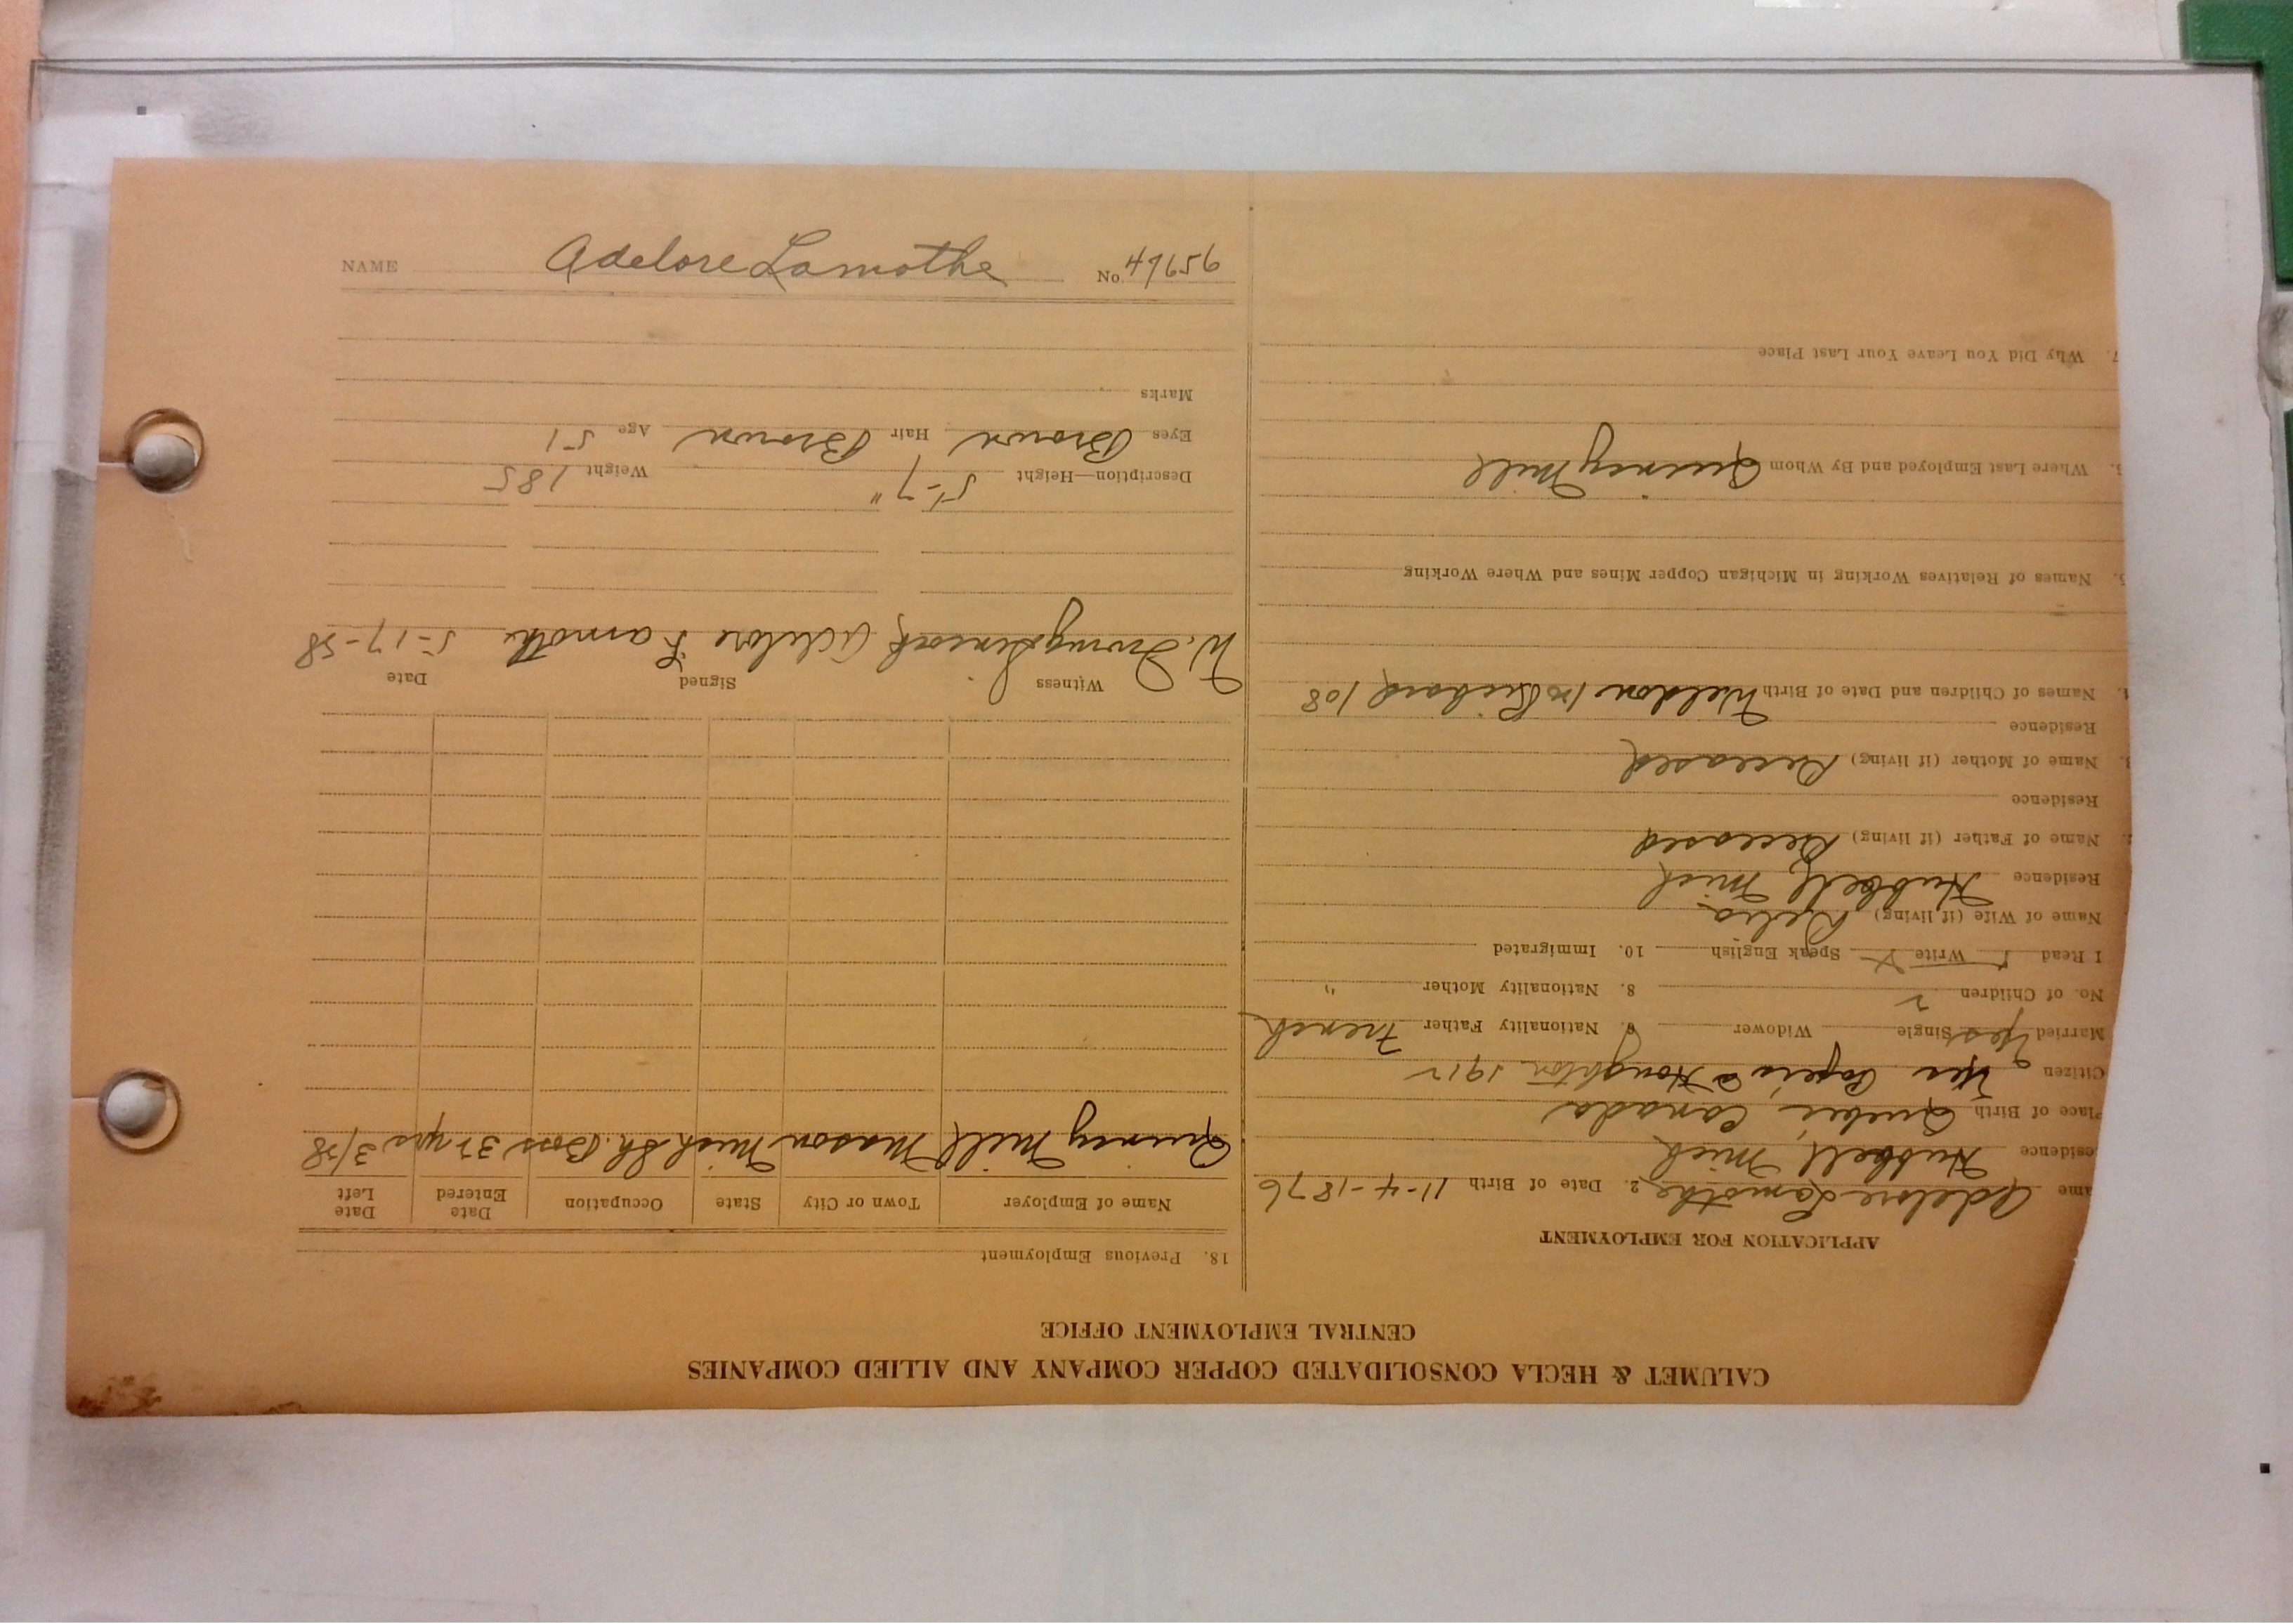 CALUMET & HECLA CONSOLIDATED COPPER COMPANY AND ALLIED COMPANIES
CENTRAL EMPLOYMENT OFFICE
APPLICATION FOR EMPLOYMENT
ame Adelore Lamothe 2. Date of Birth 11-4-1876
esidence Hubbell, Mich
Place of Birth Quebec, Canada
Citizen Yes Papers @ Houghton 1912
Married Yes Single Widower 6. Nationality Father French
No. of Children 2 8. Nationality Mother "
I Read Write Speak English 10. Immigrated
Name of Wife (if living) Delia
Residence Hubbell, Mich
Name of Father (if living) Deceased
Residence
Name of Mother (if living) Deceased
Residence
Names of Children and Date of Birth Weldon Richard 108
Names of Relatives Working in Michigan Copper Mines and Where Working
Where Last Employed and By Whom Quincy Mill
7. Why Did You Leave Your Last Place
18. Previous Employment
Name of Employer Town or City State Occupation Date Entered Date Left
Quincy Mill Mason Mich Sh. Boss 32 yrs 3/28
Witness Signed Date
W. Adelore Lamothe 5-17-28
Description—Height 5'-7" Weight 185
Eyes Brown Hair Brown Age 51
Marks
NAME Adelore Lamothe No. 47656